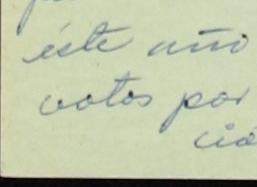 éste año
votos por